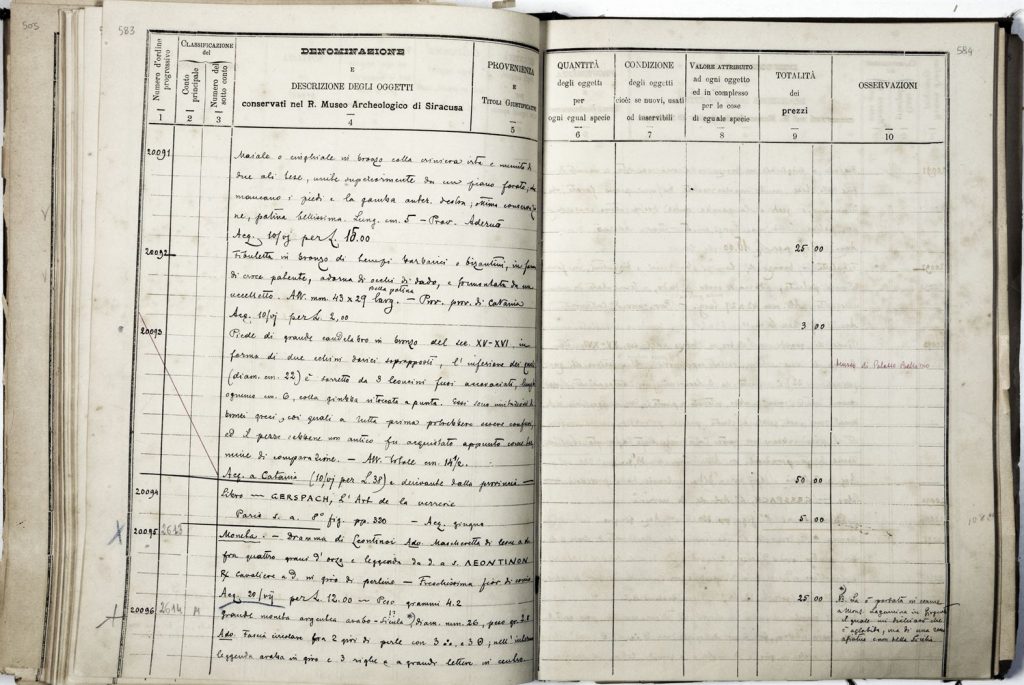 505
583
Numero d'ordine progressivo
1
CLASSIFICAZIONE
del
Conto principale
2
Numero del sotto conto
3
DENOMINAZIONE
E
DESCRIZIONE DEGLI OGGETTI
conservati nel R. Museo Archeologico di Siracusa
4
PROVENIENZA
E
TITOLI GIUSTIFICATIVI
5
20091
Maiale o cinghiale in bronzo colla criniera irta e munito di
due ali tese, unite superiormente da un piano forato,
mancano i piedi e la gamba anter. destra; ottima conservazio
ne, patina bellissima. Lung. cm. 5 – Prov. Adernò
Acq. 10/vj per L. 15.00
20092
Fibuletta in bronzo di tempi barbarici o bizantini, in forma
di croce patente, adorna di occhi di dado, e sormontata da un
bella patina
uccelletto. Alt. mm. 43 x 29 larg. – Prov. prov. di Catania
Acq. 10/vj per L. 2,00
20093
Piede di grande candelabro in bronzo del sec. XV-XVI. in
forma di due echini dorici soprapposti, l'inferiore dei quali
(diam. cm. 22) è sorretto da 3 leoncini fusi accovacciati, lungo
ognuno cm. 6, colla giubba ritoccata a punta. Essi sono imitazione di
bronzi greci, coi quali a tutta prima potrebbero essere confusi,
ed il pezzo sebbene non antico fu acquistato appunto come ter
mine di comparazione. – Alt. totale cm. 14 1/2.
Acq. a Catania (10/vj per L. 38) e derivante dalla provincia –
20094
Libro – GERSPACH, L'Art de la verrerie
Paris s. a. 8° fig. pp. 320 – Acq. giugno
20095 2625
Moneta. – Dramma di Leontinoi Ado. Mascheretta di leone
fra quattro grani d'orzo e leggenda da d. a s. LEONTINON
Rx cavaliere a d. in giro di perline – Freschissima fior di conio
Acq. 20/vij per L. 12.00 – Peso grammi 4.2
20096 2614 M
Grande moneta argentea arabo-sicula diam. mm. 26, peso gr. 2.8
Ado. Fasci circolare fra 2 giri di perle con 3 e 3; nell'interno
leggenda araba in giro e 3 righe a grandi lettere in centro.
584
QUANTITÀ
degli oggetti
per
ogni egual specie
6
CONDIZIONE
degli oggetti
cioè: se nuovi, usati
od inservibili
7
VALORE ATTRIBUITO
ad ogni oggetto
ed in complesso
per le cose
di eguale specie
8
TOTALITÀ
dei
prezzi
9
OSSERVAZIONI
10
25 00
3 00
Museo di Palazzo Bellomo
50 00
5 00
25 00
B. La è portata in esame
a Mons. Lagumina in
il quale mi dichiarò che
è aglabita, ma di una zecca
africana e non della Sicilia.